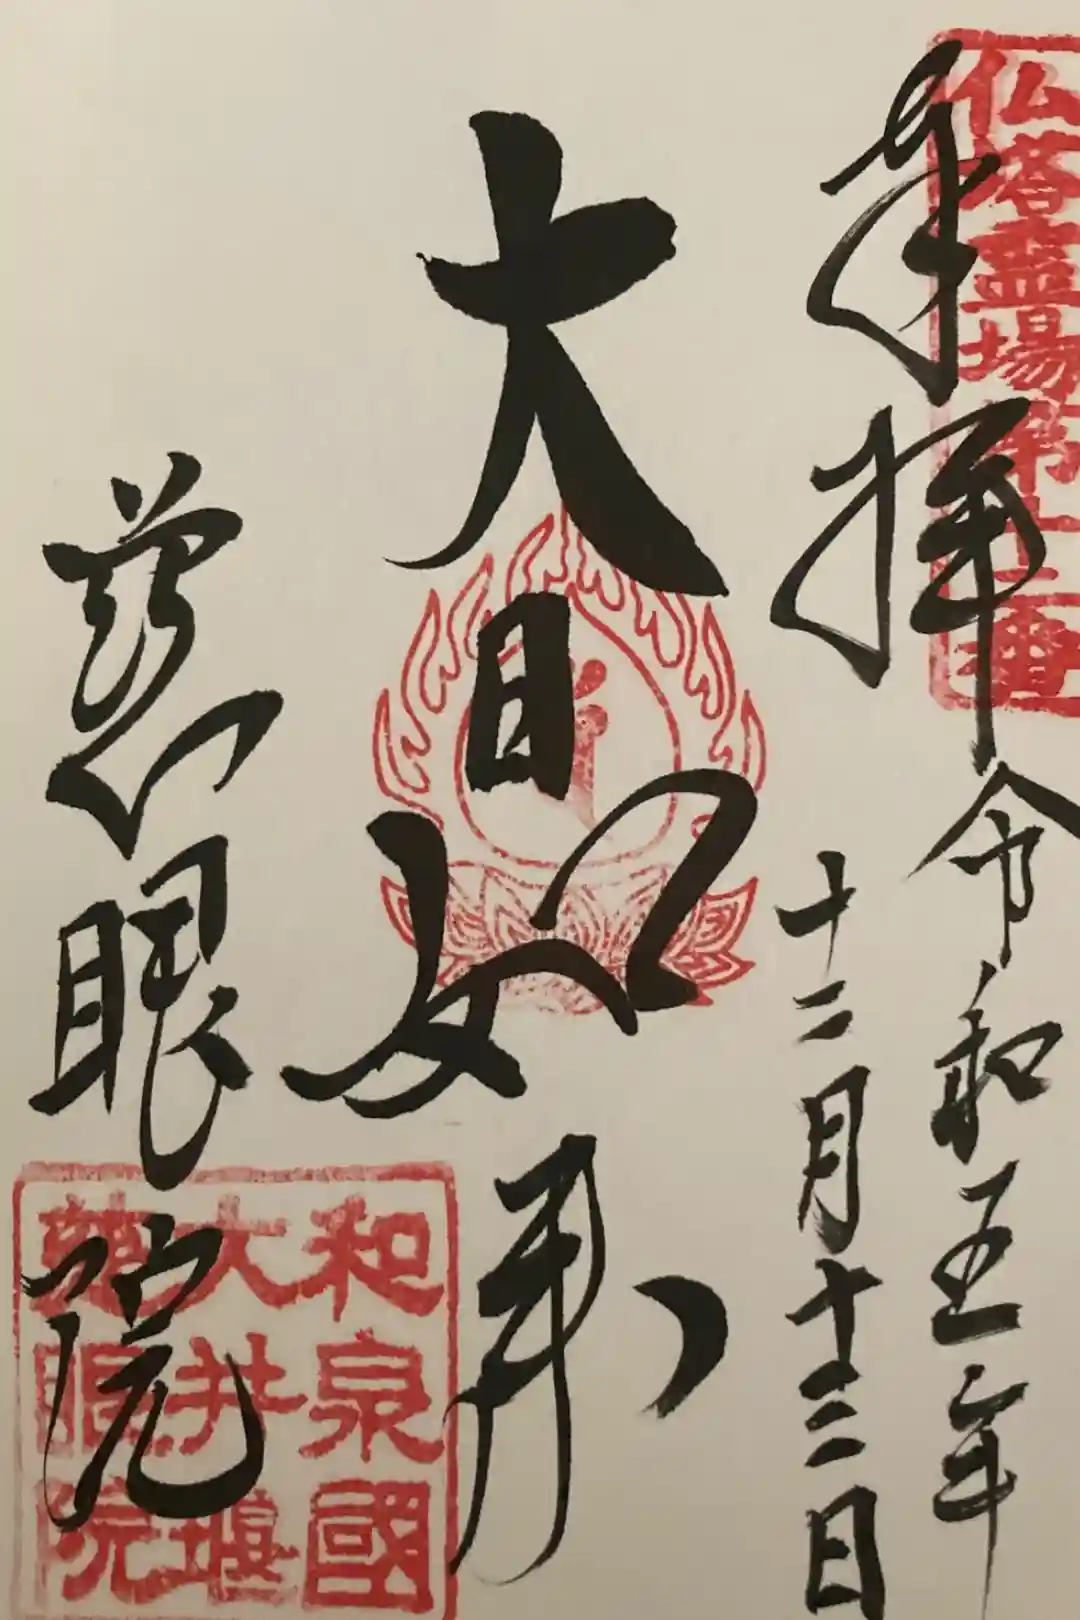 仏塔霊場第十二番
奉拝
令和五年
十二月十三日
大日如来
慈眼院
和泉國
大井堰
慈眼院